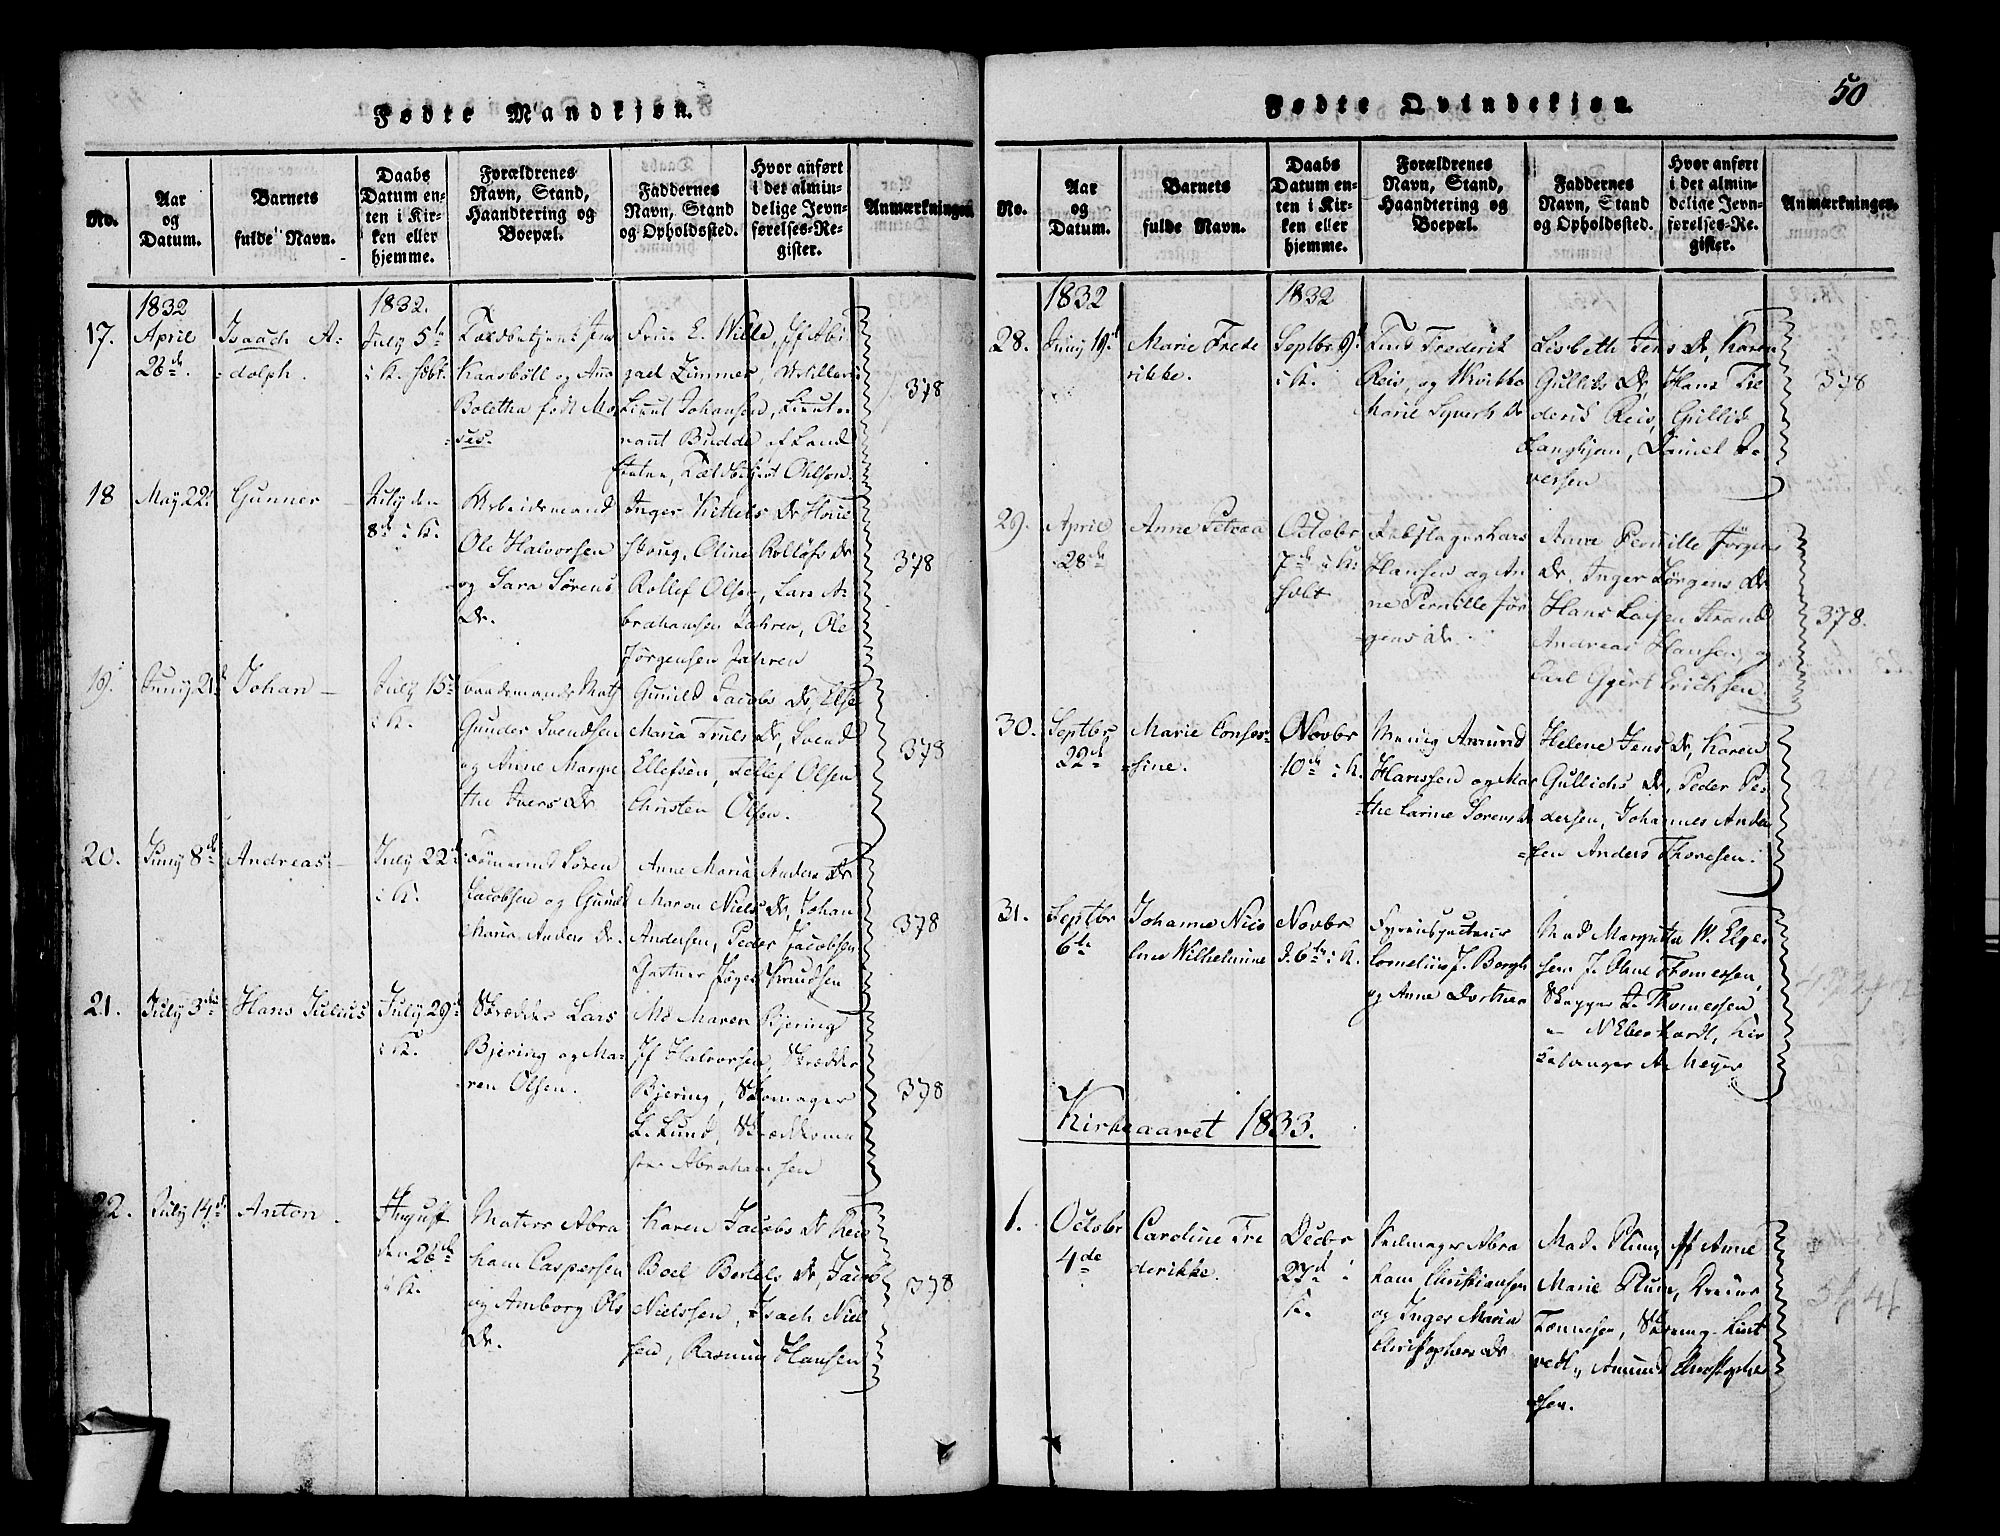 50
Fødte Mandkjøn.
No.
Aar
og
Datum.
Barnets
fulde Navn.
Daabs
Datum en-
ten i Kir-
ken eller
hjemme.
Forældrenes
Navn, Stand,
Haandtering og
Boepæl.
Faddernes
Navn, Stand
og Opholdssted.
Hvor anført
i det almin-
delige Jevn-
førelses-Re-
gister.
Anmærkninger.
17.
1832
April
28de.
Isaach A-
dolph.
1832.
July 5te
i K. støbt.
Kaasböll og Ane
Boletha født Mo
ses.
Frue E. Wille, Jf Abi
gael Zimmer, Artilleri
Lieut Johansen, Lieute-
nant Budde af Land
378
18
May 22.
Gunner
July den
8de i K.
Arbeidsmand
Ole Halvorsen
og Sara Sørens
Dr.
Inger Kittels Dr
skoug, Oline Rolløfs Dr
Rollef Olsen, Lars A-
brahamsen Jahren, Ole
Jørgensen Jahren
378
19.
Juny 21de
Johan
July 15de
i K.
Gunder Svendsen
og Anne Margre
the Ivers Dr
Gunild Jacobs Dr, Else
Maria Truls Dr, Svend
Ellefsen, Tellef Olsen
Christen Olsen.
378
20.
Juny 8de
Andreas
July 22de
i K.
Tømmermd Søren
Jacobsen og Gunild
Maria Anders Dr.
Anne Maria Anders Dr
Maren Niels Dr, Johan
Andersen, Peder Jacobsen
Knudsen
378
21.
July 3die
Hans Julius
July 29de
i K.
Skrædder Lars
Bjering og Ma-
ren Olsen.
Md Maren Bjering
Jf Halvorsen, Skrædder
Bjering, Skomager
L. Lund, Skrædderme
ster Abrahamsen
378
22.
July 14de
Anton.
August
den 26de
i K.
Matros Abra
ham Caspersen
og Amborg Ols
Dr.
Karen Jacobs Dr
Boel Bertels Dr, Jacob
Nielssen, Isach Niel
sen, Rasmus Hansen
378
Fødte Qvindekjøn.
No.
Aar
og
Datum.
Barnets
fulde Navn.
Daabs
Datum en-
ten i Kir-
ken eller
hjemme.
Forældrenes
Navn, Stand,
Haandtering og
Boepæl.
Faddernes
Navn, Stand
og Opholdssted.
Hvor anført
i det almin-
delige Jevn-
førelses-Re-
gister.
Anmærkninger.
28.
1832
Juny 19de
Marie Frede
rikke.
1832
Septbr 9de
i K.
Frederik
Reis, og Wibekke
Marie Syverts Dr
Lisbeth Jens Dr, Karen
Gullichs Dr, Hans Fre
derik Reis, Gullik
Langhjem, Daniel I-
versen
378
29.
April
28de
Anne Petrea
Octobr
7de i K.
støbt
Rebslager Lars
Hansen og An
ne Pernille Jør
gens Dr
Anne Pernille Jørgens
Dr. Inger Jörgens Dr
Hans Larsen Strand
Andreas Hansen, og
Carl Gjert Erichsen.
378.
30.
Septbr
22de
Marie Conser-
sine.
Novbr
10de i K.
Amund
Hanssen og Mar
the Carine Sørens Dr
Helene Jens Dr, Karen
Gullichs Dr, Peder Pe-
dersen, Johannes Ander
sen Anders Thoresen.
31.
Septbr
6te
Johanne Nico
line Wilhelmine
Novbr
d. 6te i K.
Cornelius J. Borgh
og Anne Dorthea
Mad Margretha W. Elger
sen J. Thomessen,
Skipper D. Thomessen
N Eberhardt, Kir
kesanger A. Meyer
Kirkeaaret 1833.
1.
Octobr
4de
Caroline Fre
derikke.
Decbr
27de i
K.
Seilmager Abra
ham Christiansen
og Inger Maria
Christophers Dr
Mad. Plum, Jf Anne
Marie Plum,
Tønnesen,
vedt, Amund Christopher
sen.